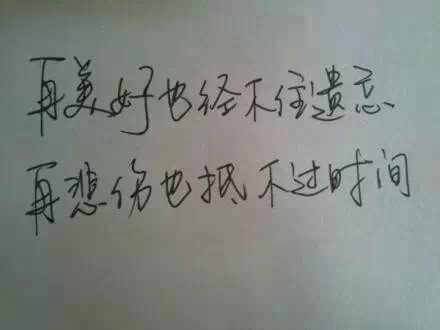 再美好也经不住遗忘
再悲伤也抵不过时间